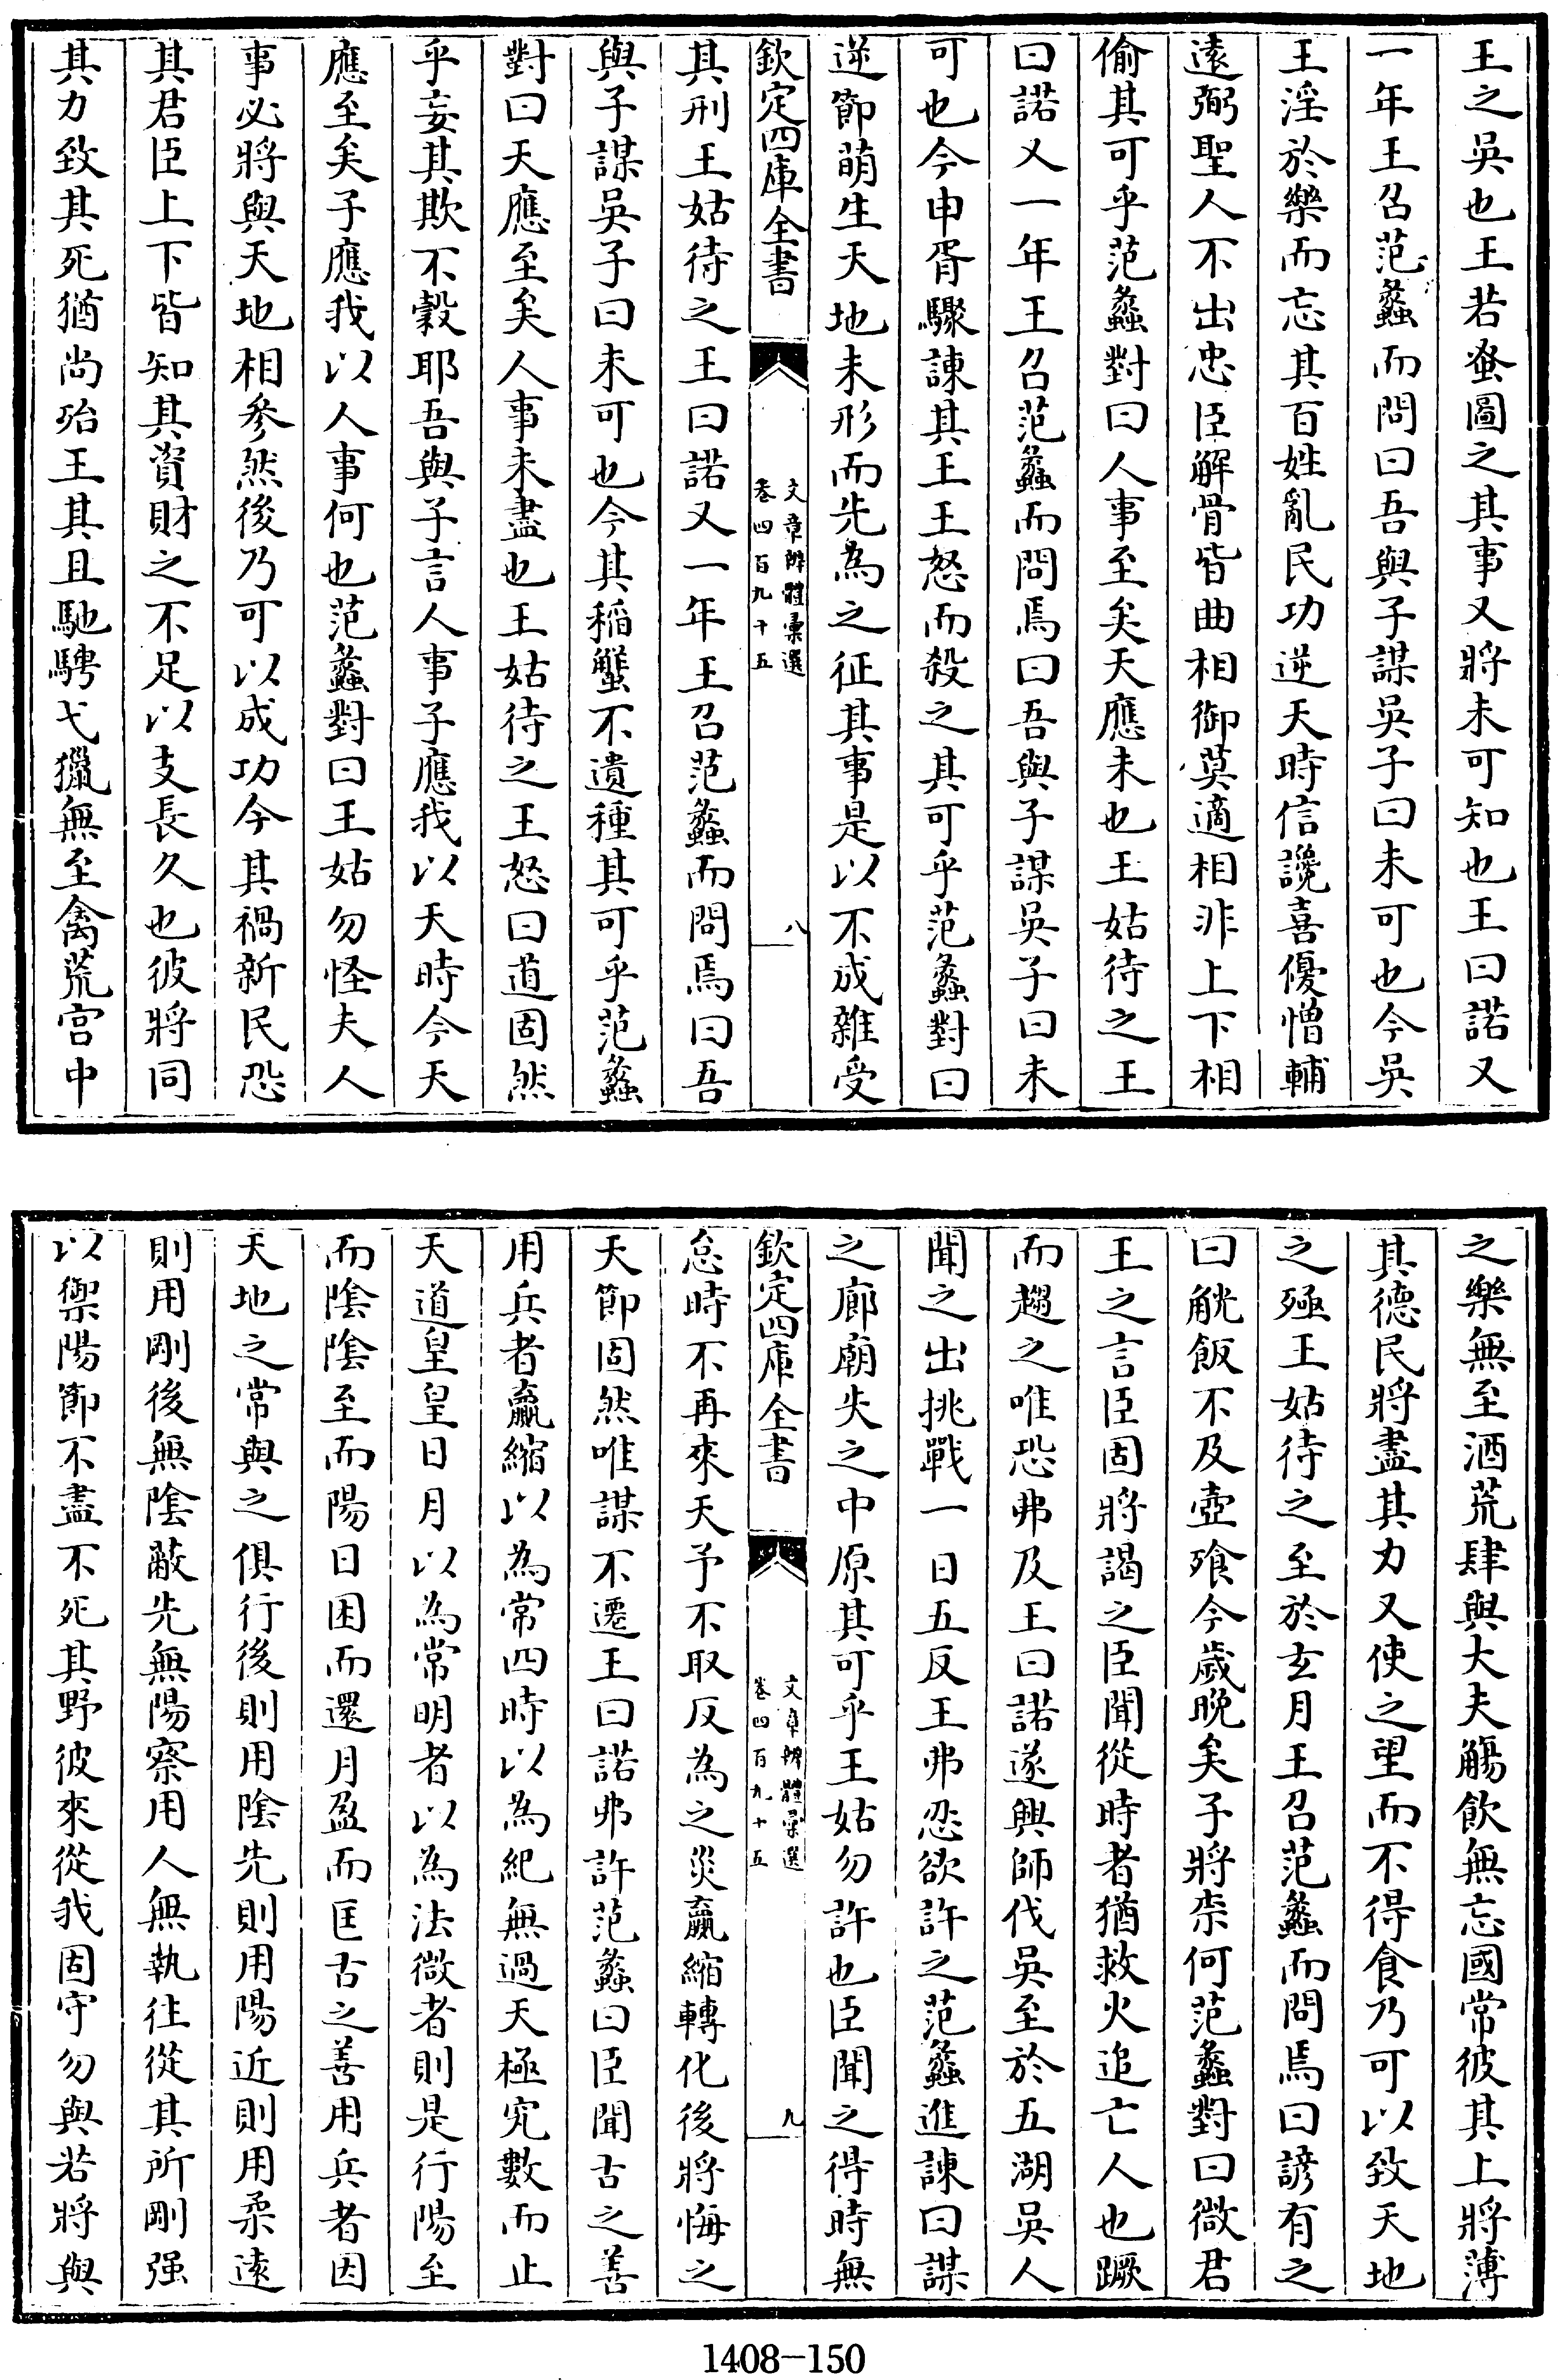 王之吳也王若蚤圖之其事又將未可知也王曰諾又
一年王召范蠡而問曰吾與子謀吳子曰未可也今吳
王淫於樂而忘其百姓亂民功逆天時信讒喜優憎輔
遠弼聖人不出忠臣解骨皆曲相御莫適相非上下相
偷其可乎范蠡對曰人事至矣天應未也王姑待之王
曰諾又一年王召范蠡而問焉曰吾與子謀吳子曰未
可也今申胥驟諫其王王怒而殺之其可乎范蠡對曰
逆節萌生天地未形而先為之征其事是以不成雜受
欽定四庫全書
文章辨體彙選
卷四百九十五
八
其刑王姑待之王曰諾又一年王召范蠡而問焉曰吾
與子謀吳子曰未可也今其稻蟹不遺種其可乎范蠡
對曰天應至矣人事未盡也王姑待之王怒曰道固然
乎妄其欺不穀耶吾與子言人事子應我以天時今天
應至矣子應我以人事何也范蠡對曰王姑勿怪夫人
事必將與天地相參然後乃可以成功今其禍新民恐
其君臣上下皆知其資財之不足以支長久也彼將同
其力致其死猶尚殆王其且馳騁弋獵無至禽荒宮中
之樂無至酒荒肆與大夫觴飲無忘國常彼其上將薄
其德民將盡其力又使之望而不得食乃可以致天地
之殛王姑待之至於玄月王召范蠡而問焉曰諺有之
曰觥飯不及壺飱今歲晚矣子將柰何范蠡對曰微君
王之言臣固將謁之臣聞從時者猶救火追亡人也蹶
而趨之唯恐弗及王曰諾遂興師伐吳至於五湖吳人
聞之出挑戰一日五反王弗忍欲許之范蠡進諫曰謀
之廊廟失之中原其可乎王姑勿許也臣聞之得時無
欽定四庫全書
文章辨體彙選
卷四百九十五
九
怠時不再來天予不取反為之災贏縮轉化後將悔之
天節固然唯謀不遷王曰諾弗許范蠡曰臣聞古之善
用兵者贏縮以為常四時以為紀無過天極究數而止
天道皇皇日月以為常明者以為法微者則是行陽至
而陰陰至而陽日困而還月盈而匡古之善用兵者因
天地之常與之俱行後則用陰先則用陽近則用柔遠
則用剛後無陰蔽先無陽察用人無執往從其所剛强
以禦陽節不盡不死其野彼來從我固守勿與若將與
1408-150